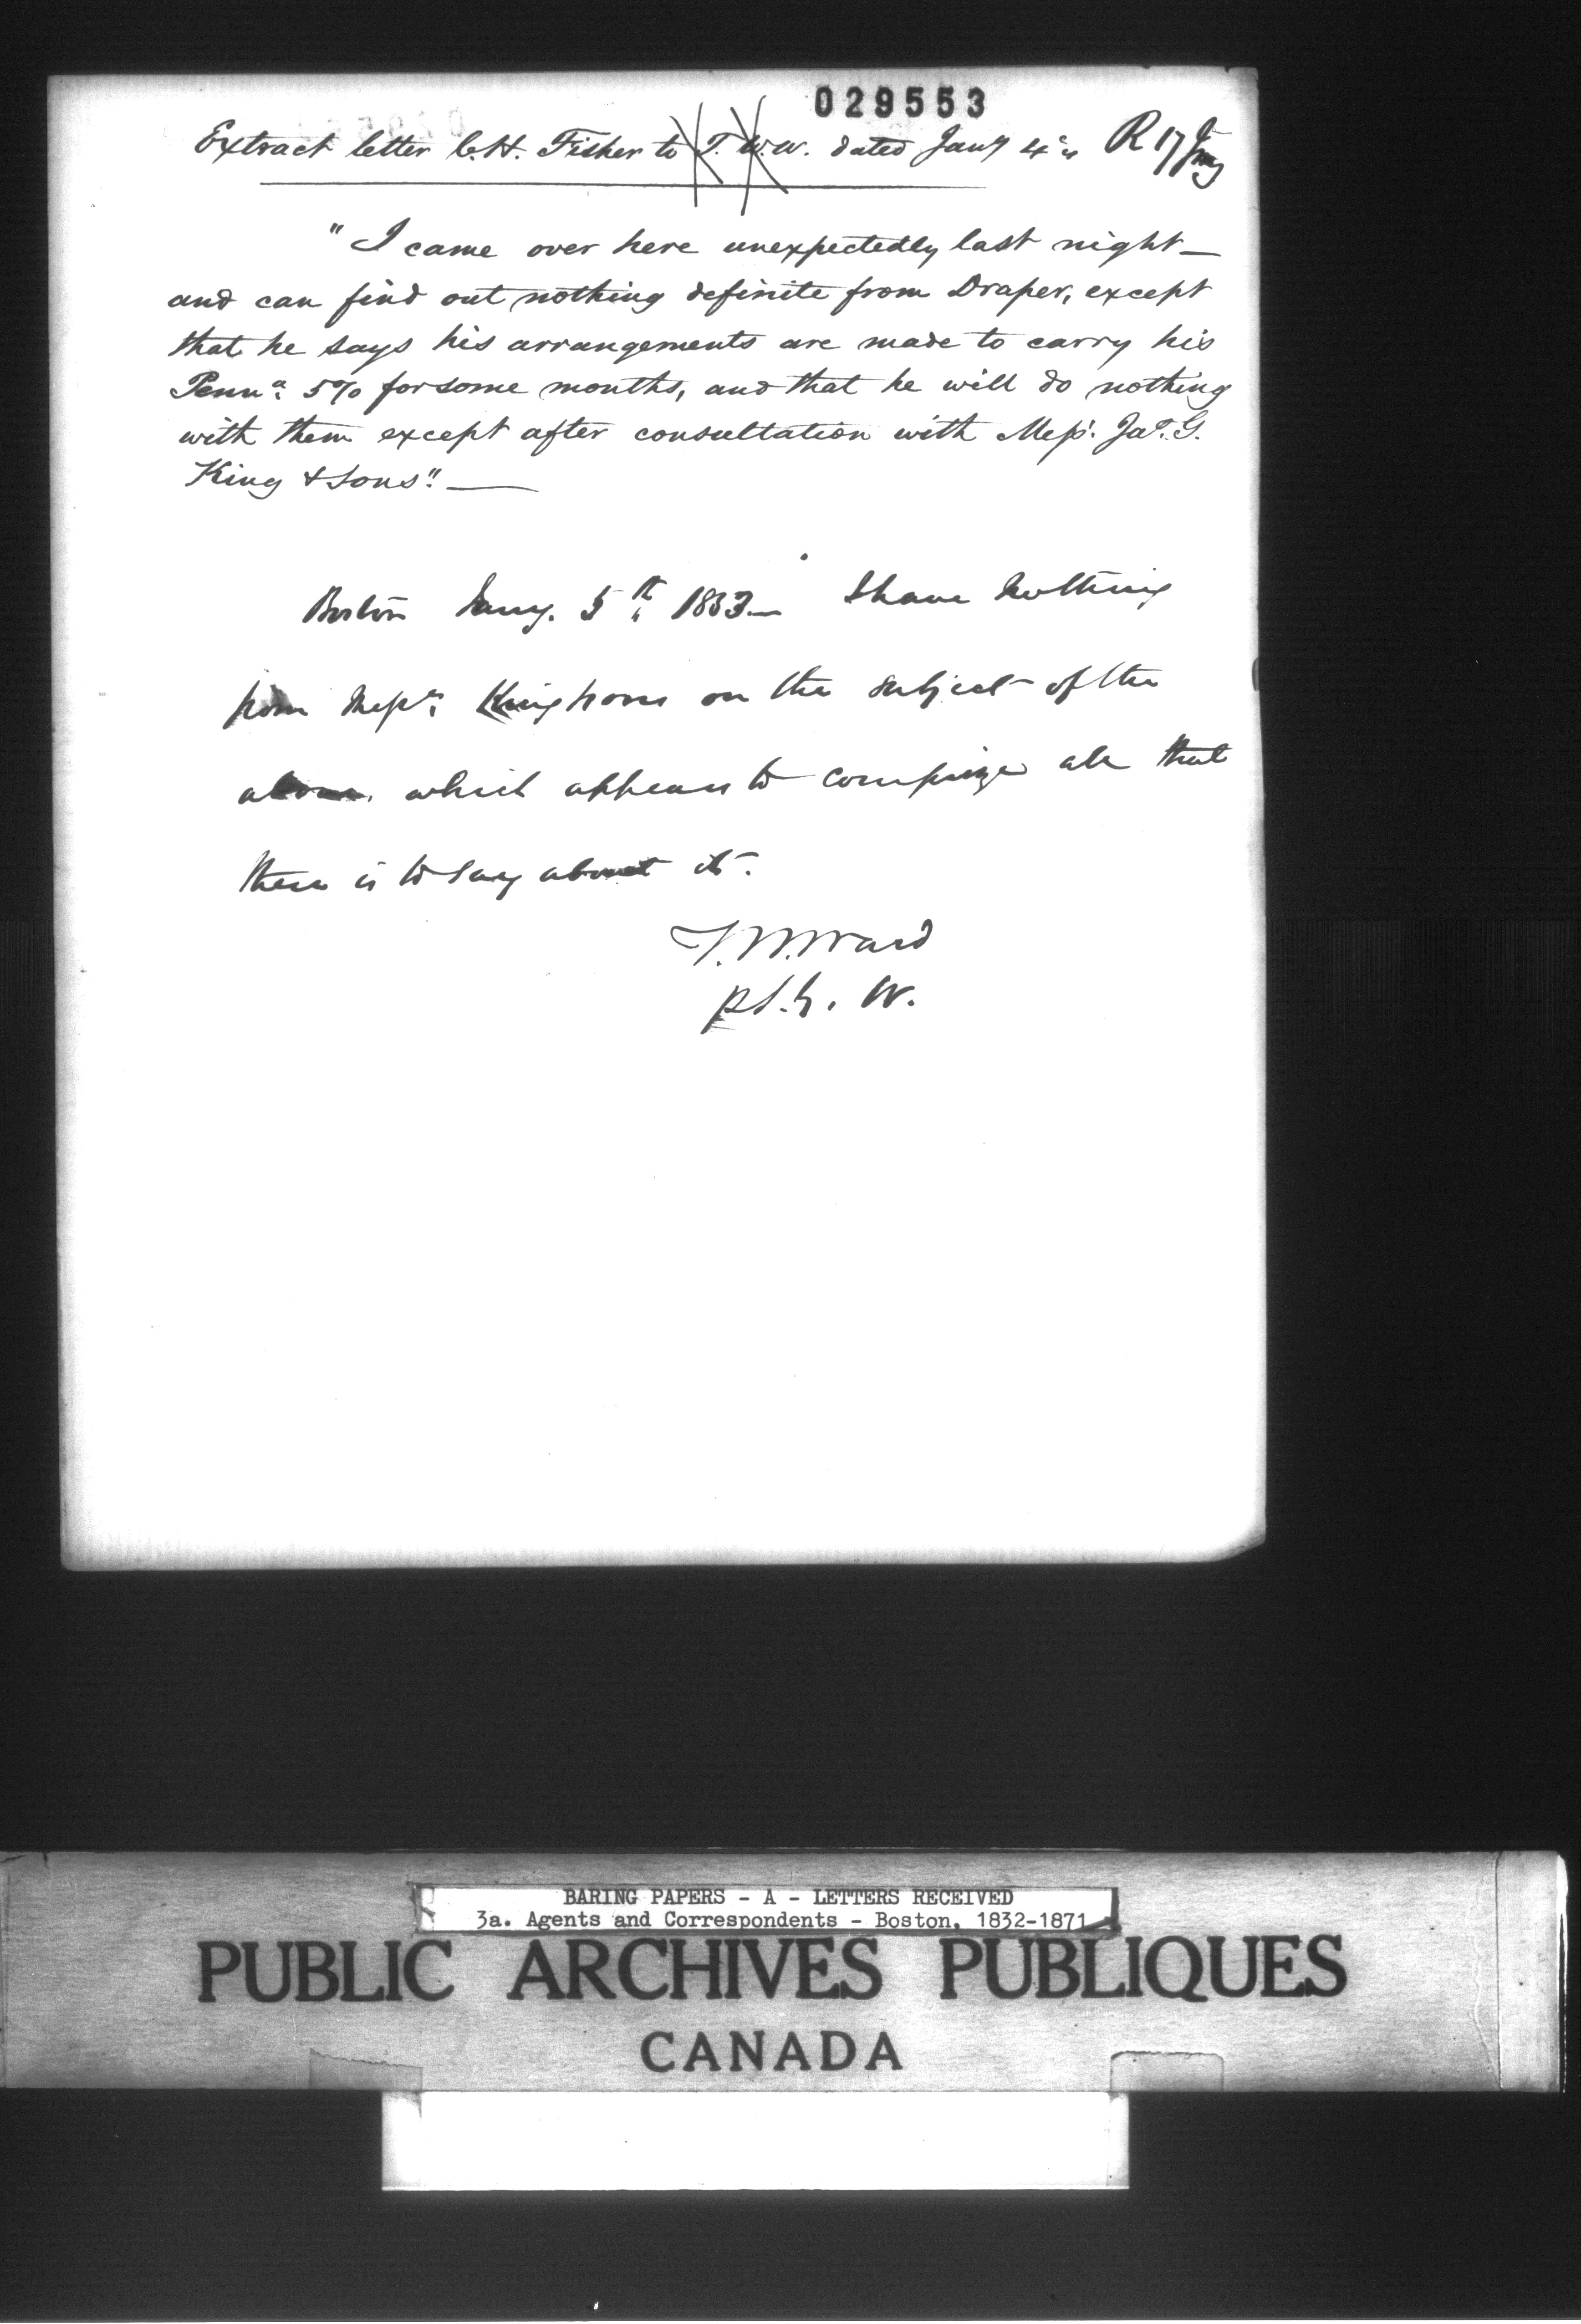 029553
Extract letter C.H. Fisher to T.W.W. dated Jany 4th R 17 Jany
"I came over here unexpectedly last night—
and can find out nothing definite from Draper, except
that he says his arrangements are made to carry his
Penna. 5% for some months, and that he will do nothing
with them except after consultation with Messrs. Jas. G.
King & Sons".—
Boston Jany. 5th 1853— I have nothing
from Messrs. King & Sons on the subject of the
above, which appears to comprize all that
there is to say about it.
T. W. Ward
p S. G. W.
BARING PAPERS - A - LETTERS RECEIVED
3a. Agents and Correspondents - Boston, 1832-1871
PUBLIC ARCHIVES PUBLIQUES
CANADA